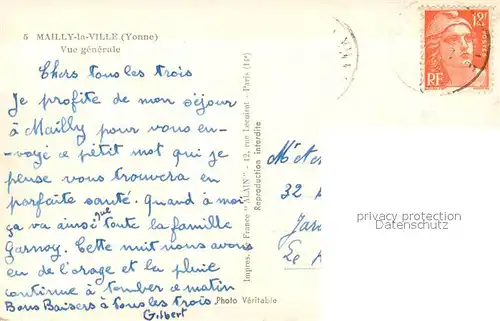 5 MAILLY-la-VILLE (Yonne)
Vue générale
Chers tous les trois
Je profite de mon séjour
à Mailly pour vous en-
voyé ce petit mot qui je
pense vous trouvera en
parfaite santé. Quand à moi
ça va ainsi que toute la famille
Garnoy. Cette nuit nous avons
eu de l'orage et la pluie
continue à tomber ce matin
Bons Baisers à tous les trois
Gilbert
Photo Véritable
Impres. de France "ALAIN" - 12, rue Lecuirot - Paris (14e)
Reproduction interdite
12F
POSTES
RF
32
Le
privacy protection
Datenschutz